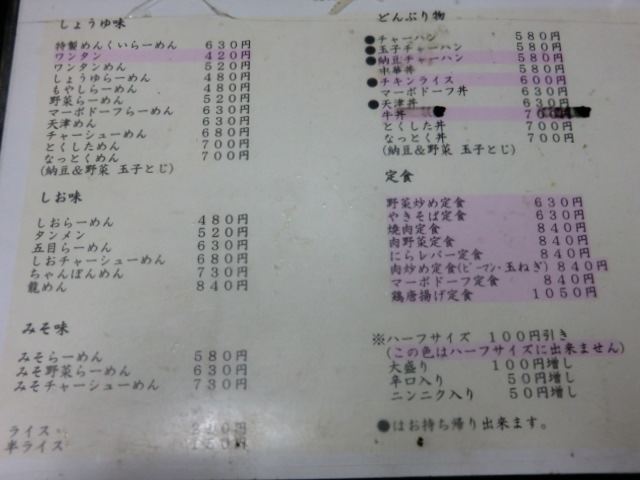 しょうゆ味
特製めんくいらーめん 630円
ワンタン 420円
ワンタンめん 520円
しょうゆらーめん 480円
もやしらーめん 480円
野菜らーめん 520円
マーボドーフらーめん 630円
天津めん 630円
チャーシューめん 680円
とくしためん 700円
なっとくめん 700円
(納豆&野菜 玉子とじ)
しお味
しおらーめん 480円
タンメン 520円
五目らーめん 630円
しおチャーシューめん 680円
ちゃんぽんめん 730円
龍めん 840円
みそ味
みそらーめん 580円
みそ野菜らーめん 630円
みそチャーシューめん 730円
ライス
半ライス
どんぶり物
●チャーハン 580円
●玉子チャーハン 580円
●納豆チャーハン 580円
中華丼 580円
●チキンライス 600円
マーボドーフ丼 630円
●天津丼 630円
牛丼
とくした丼 700円
なっとく丼 700円
(納豆&野菜 玉子とじ)
定食
野菜炒め定食 630円
やきそば定食 630円
焼肉定食 840円
肉野菜定食 840円
にらレバー定食 840円
肉炒め定食(ピーマン・玉ねぎ) 840円
マーボドーフ定食 840円
鶏唐揚げ定食 1050円
※ハーフサイズ 100円引き
(この色はハーフサイズに出来ません)
大盛り 100円増し
辛口入り 50円増し
ニンニク入り 50円増し
●はお持ち帰り出来ます。